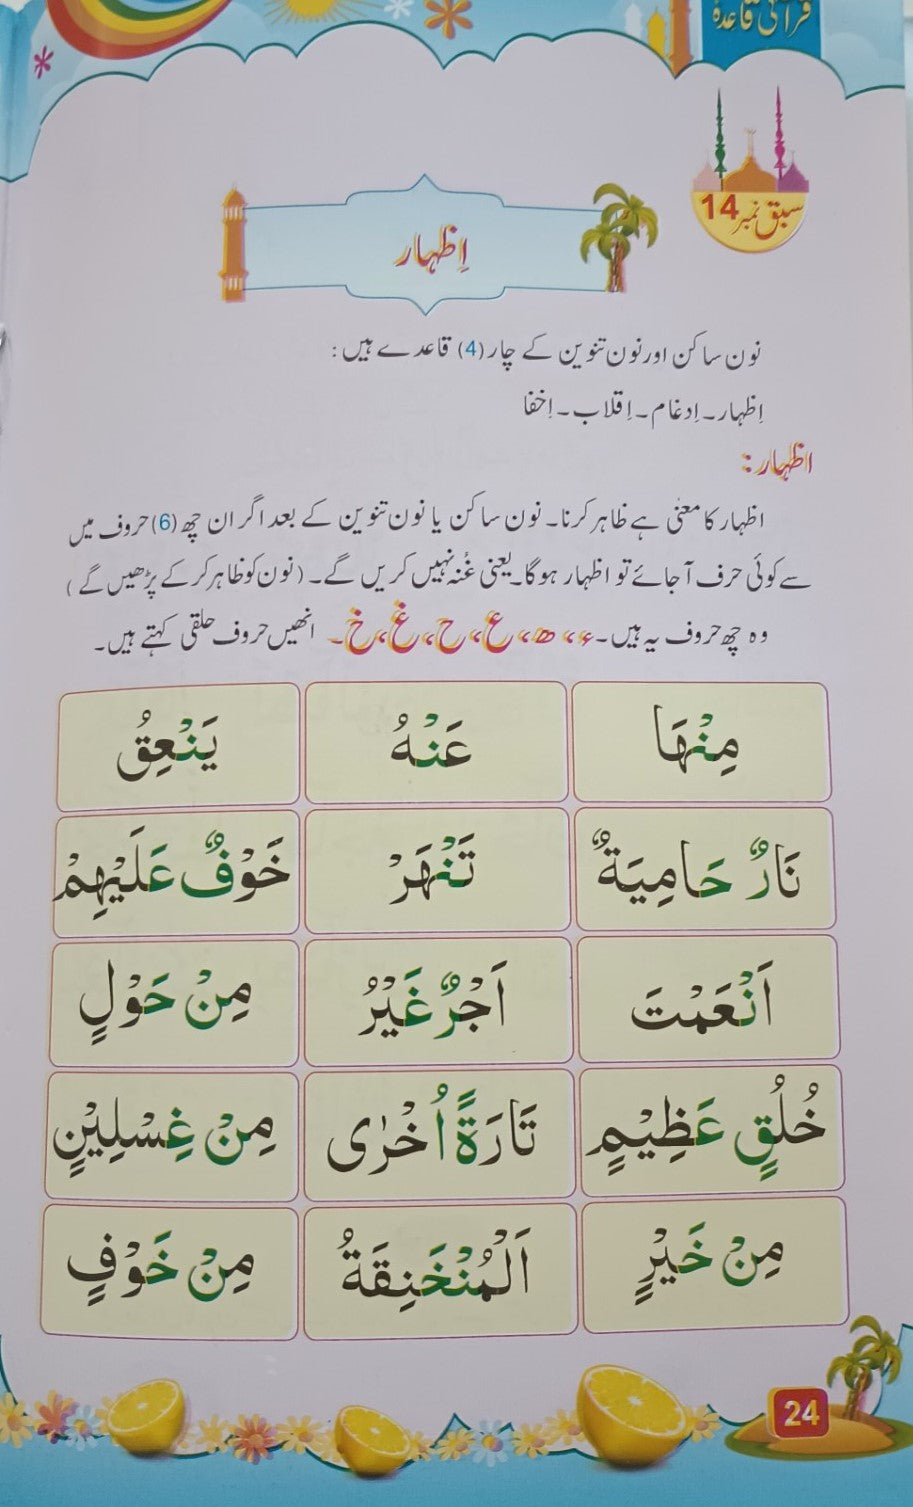 قرآنی قاعدہ
سبق نمبر 14
اِظہار
نون ساکن اور نون تنوین کے چار (4) قاعدے ہیں:
اِظہار۔ اِدغام۔ اِقلاب۔ اِخفا
اظہار:
اظہار کا معنیٰ ہے ظاہر کرنا۔ نون ساکن یا نون تنوین کے بعد اگر ان چھ (6) حروف میں
سے کوئی حرف آجائے تو اظہار ہوگا۔ یعنی غُنہ نہیں کریں گے۔ (نون کو ظاہر کرکے پڑھیں گے)
وہ چھ حروف یہ ہیں۔ ء، ھ، ع، ح، غ، خ۔ انھیں حروف حلقی کہتے ہیں۔
مِنْهَا عَنْهُ يَنْعِقُ
نَارٌ حَامِيَةٌ تَنْهَرْ خَوْفٌ عَلَيْهِمْ
اَنْعَمْتَ اَجْرٌ غَيْرُ مِنْ حَوْلٍ
خُلُقٍ عَظِيْمٍ تَارَةً اُخْرٰى مِنْ غِسْلِيْنٍ
مِنْ خَيْرٍ اَلْمُنْخَنِقَةُ مِنْ خَوْفٍ
24